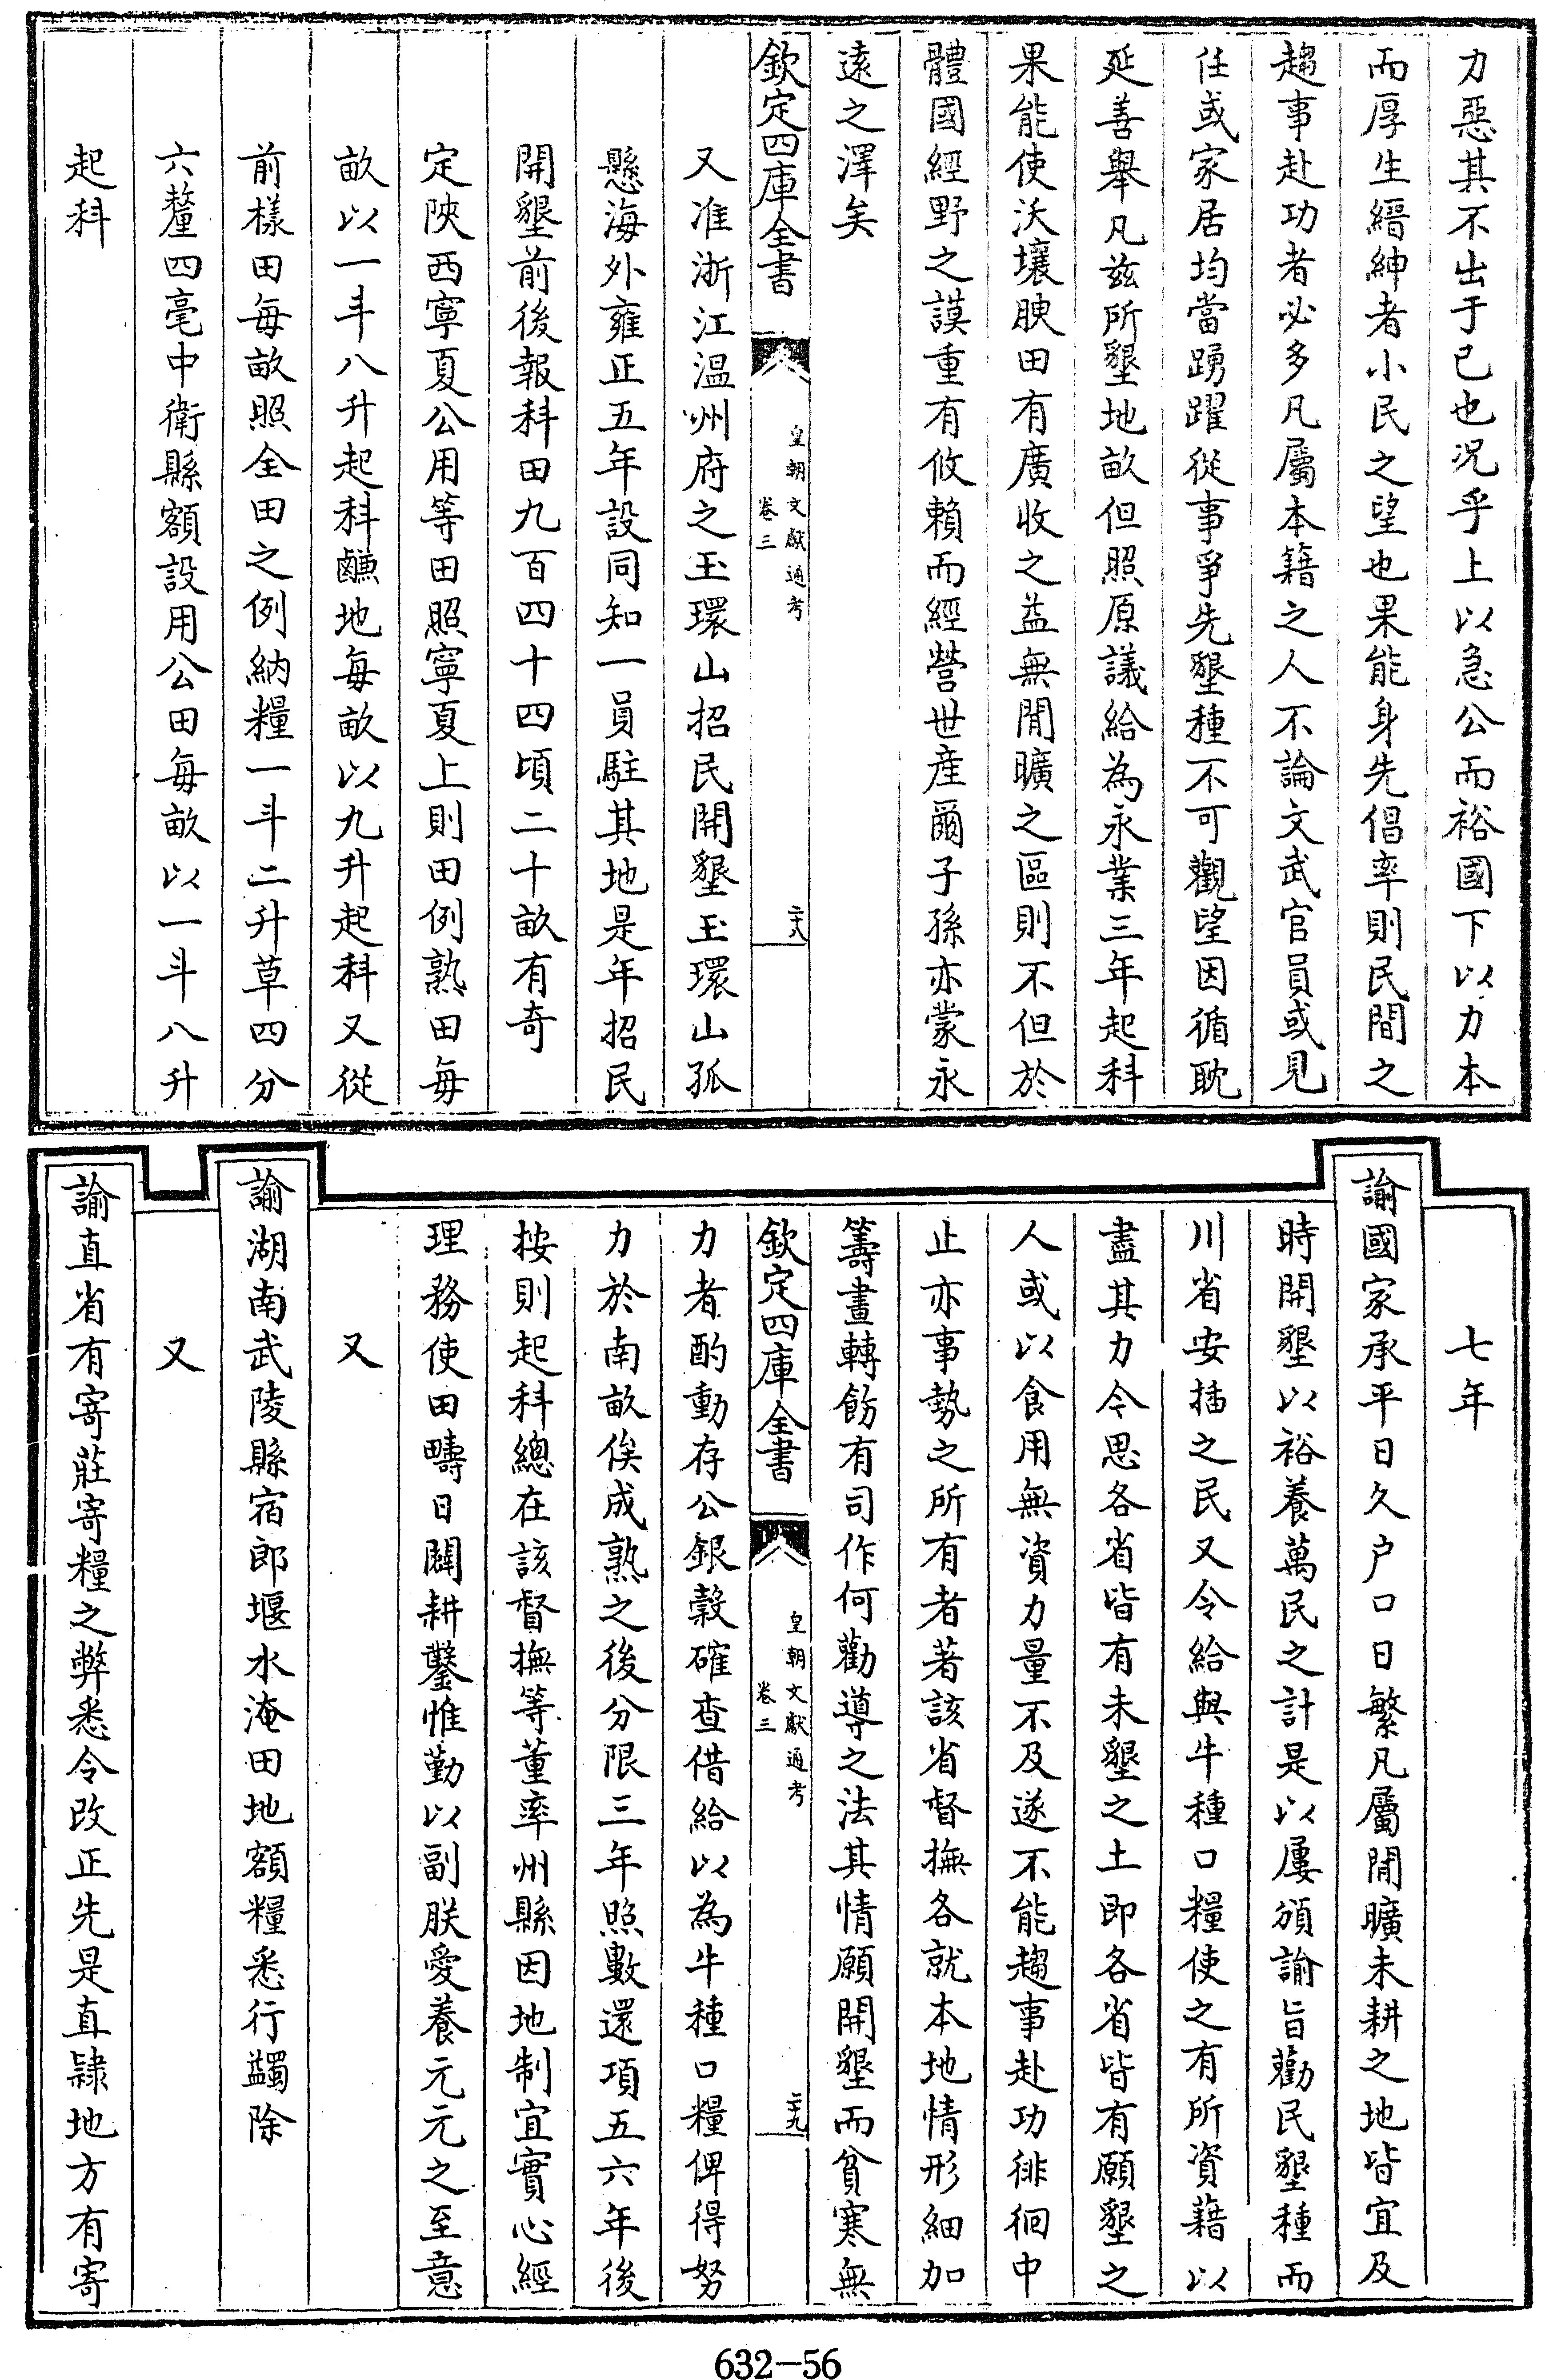 力惡其不出于已也况乎上以急公而裕國下以力本
而厚生縉紳者小民之望也果能身先倡率則民間之
趨事赴功者必多凡屬本籍之人不論文武官員或見
任或家居均當踴躍從事爭先墾種不可觀望因循耽
延善舉凡兹所墾地畝但照原議給為永業三年起科
果能使沃壤腴田有廣收之益無閒曠之區則不但於
體國經野之謨重有攸賴而經營世產爾子孫亦蒙永
遠之澤矣
欽定四庫全書
皇朝文獻通考
卷三
二十八
又准浙江温州府之玉環山招民開墾玉環山孤
懸海外雍正五年設同知一員駐其地是年招民
開墾前後報科田九百四十四頃二十畝有奇
定陜西寧夏公用等田照寧夏上則田例熟田每
畝以一斗八升起科鹻地每畝以九升起科又從
前樣田每畝照全田之例納糧一斗二升草四分
六釐四毫中衛縣額設用公田每畝以一斗八升
起科
七年
諭國家承平日久户口日繁凡屬閒曠未耕之地皆宜及
時開墾以裕養萬民之計是以屢頒諭旨勸民墾種而
川省安插之民又令給與牛種口糧使之有所資藉以
盡其力令思各省皆有未墾之土即各省皆有願墾之
人或以食用無資力量不及遂不能趨事赴功徘徊中
止亦事勢之所有者著該省督撫各就本地情形細加
籌畫轉飭有司作何勸導之法其情願開墾而貧寒無
欽定四庫全書
皇朝文獻通考
卷三
二十九
力者酌動存公銀穀確查借給以為牛種口糧俾得努
力於南畝俟成熟之後分限三年照數還項五六年後
按則起科總在該督撫等董率州縣因地制宜實心經
理務使田疇日闢耕鑿惟勤以副朕愛養元元之至意
又
諭湖南武陵縣宿郎堰水淹田地額糧悉行蠲除
又
諭直省有寄莊寄糧之弊悉令改正先是直隸地方有寄
632-56